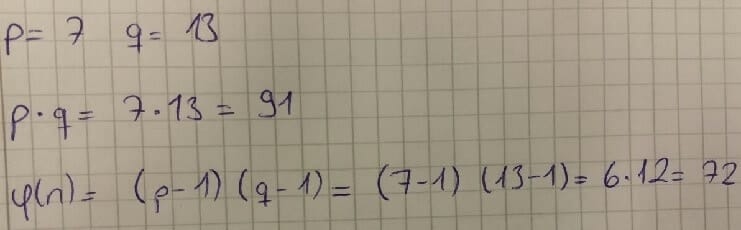 p= 7 q= 13
p·q= 7·13= 91
φ(n)= (p-1)(q-1)= (7-1) (13-1)= 6·12= 72